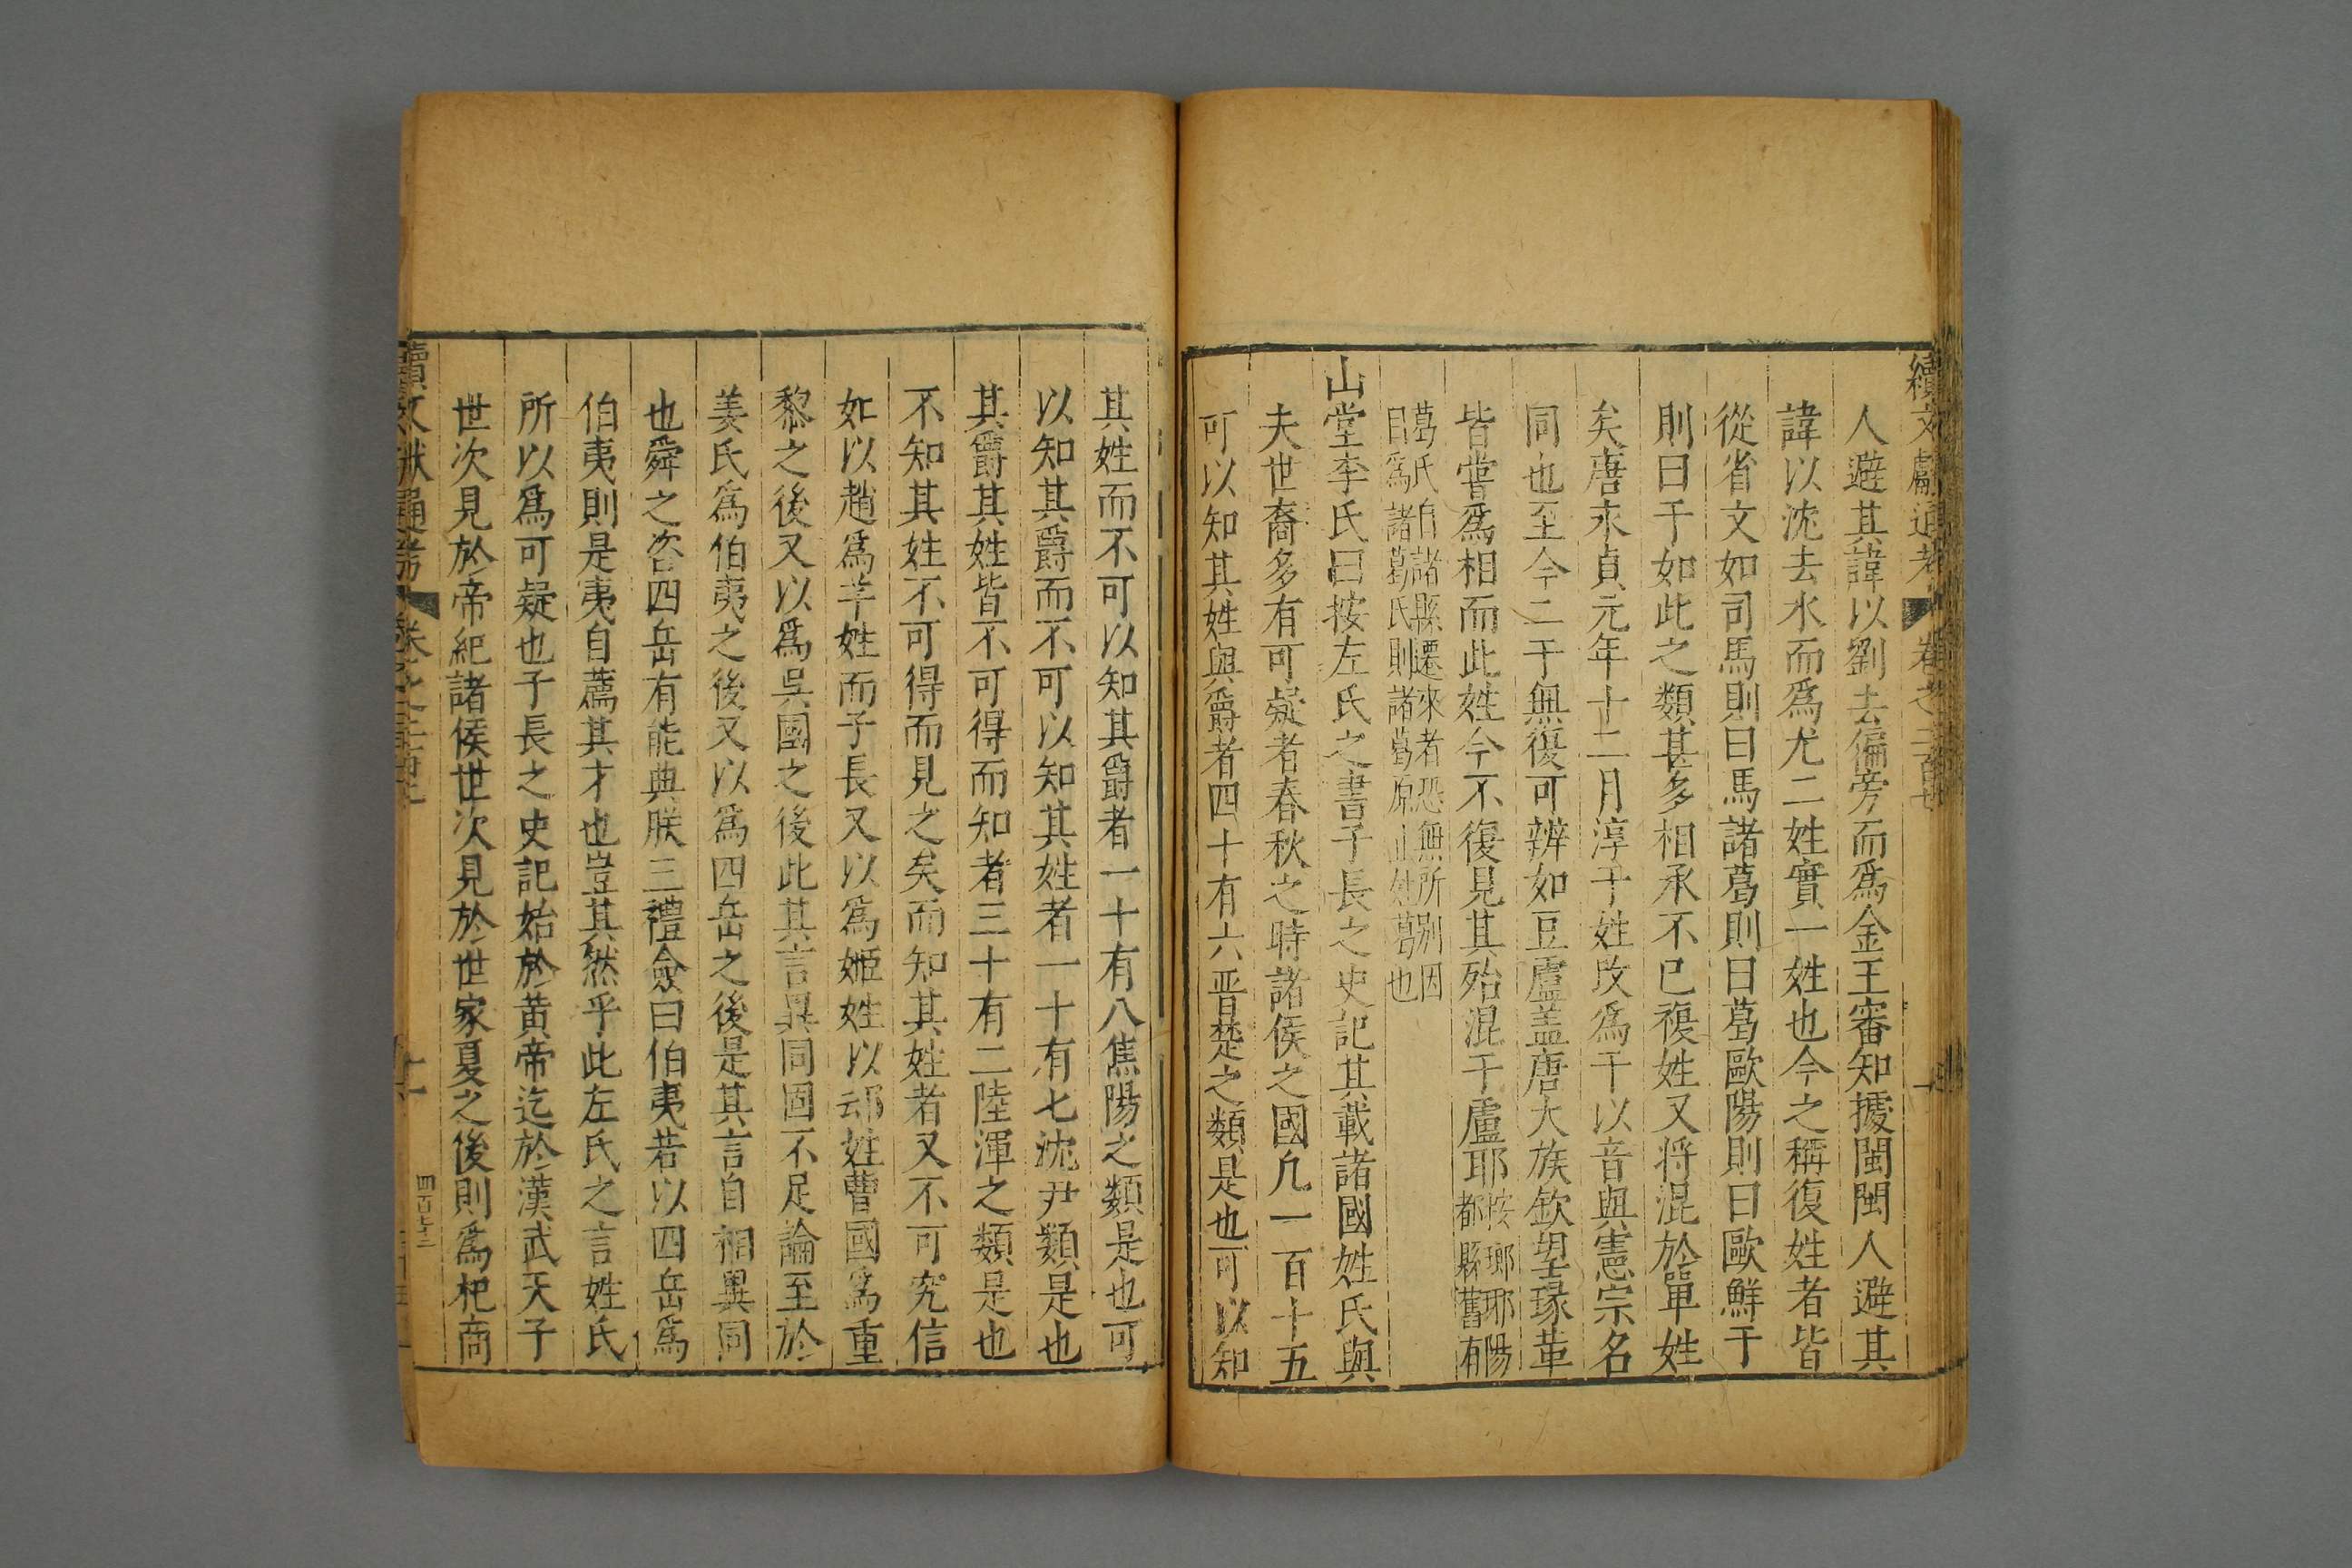 續文獻通考 卷之二百七
人避其諱以劉去偏旁而爲金王審知據閩閩人避其
諱以沈去水而爲尤二姓實一姓也今之稱復姓者皆
從省文如司馬則曰馬諸葛則曰葛歐陽則曰歐鮮于
則曰于如此之類甚多相承不已複姓又将混於單姓
矣唐永貞元年十二月淳于姓改爲于以音與憲宗名
同也至今二于無復可辨如豆盧盖唐大族欽望瑑革
皆嘗爲相而此姓今不復見其殆混于盧耶
按瑯琊陽
都縣舊有
葛氏自諸縣遷來者恐無所別因
曰爲諸葛氏則諸葛原止姓葛也
山堂李氏曰按左氏之書子長之史記其載諸國姓氏與
夫世裔多有可疑者春秋之時諸侯之國凢一百十五
可以知其姓與爵者四十有六晋楚之類是也可以知
其姓而不可以知其爵者一十有八焦陽之類是也可
以知其爵而不可以知其姓者一十有七沈尹類是也
其爵其姓皆不可得而知者三十有二陸渾之類是也
不知其姓不可得而見之矣而知其姓者又不可究信
如以趙爲芉姓而子長又以爲姬姓以邧姓曹國爲重
黎之後又以爲吳國之後此其言異同固不足論至於
姜氏爲伯夷之後又以爲四岳之後是其言自相異同
也舜之咨四岳有能典朕三禮僉曰伯夷若以四岳爲
伯夷則是夷自薦其才也豈其然乎此左氏之言姓氏
所以爲可疑也子長之史記始於黄帝迄於漢武天子
世次見於帝紀諸侯世次見於世家夏之後則爲杞商
續文獻通考 卷之二百七
四百七十二